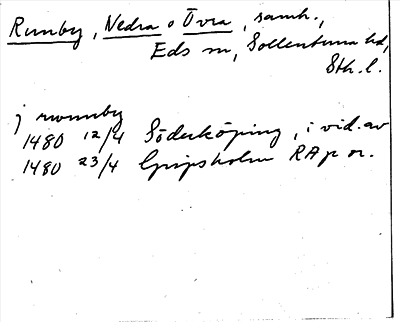 Runby, Nedra o Övra, samh.,
Eds sn, Sollentuna hd,
Sth. l.
j rwnnby
1480 12/4 Söderköping, i vid. av
1480 23/4 Gripsholm RA p or.